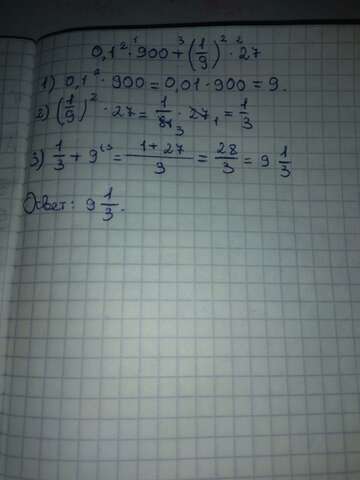 0,1² · 900 + (1/9)² · 27
1) 0,1² · 900 = 0,01 · 900 = 9.
2) (1/9)² · 27 = 1/81 · 27 = 1/3
3) 1/3 + 9 = (1+27)/3 = 28/3 = 9 1/3
Ответ: 9 1/3.